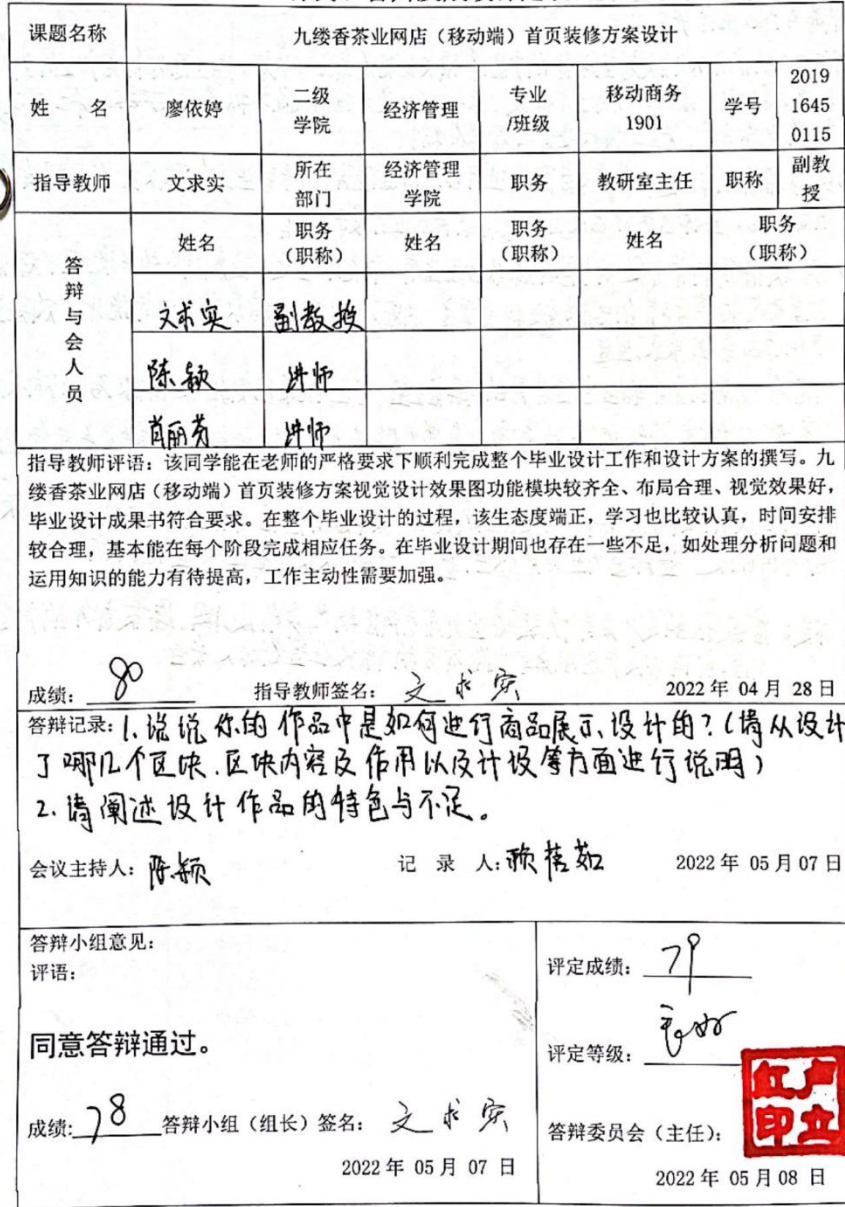 课题名称 九缕香茶业网店（移动端）首页装修方案设计
姓 名 廖依婷 二级学院 经济管理 专业/班级 移动商务1901 学号 2019 1645 0115
指导教师 文求实 所在部门 经济管理学院 职务 教研室主任 职称 副教授
答辩与会人员 姓名 职务（职称） 姓名 职务（职称） 姓名 职务（职称）
文求实 副教授
陈颖 讲师
肖丽芳 讲师
指导教师评语：该同学能在老师的严格要求下顺利完成整个毕业设计工作和设计方案的撰写。九
缕香茶业网店（移动端）首页装修方案视觉设计效果图功能模块较齐全、布局合理、视觉效果好，
毕业设计成果书符合要求。在整个毕业设计的过程，该生态度端正，学习也比较认真，时间安排
较合理，基本能在每个阶段完成相应任务。在毕业设计期间也存在一些不足，如处理分析问题和
运用知识的能力有待提高，工作主动性需要加强。
成绩：80 指导教师签名：文求实 2022 年 04 月 28 日
答辩记录：1.说说你的作品中是如何进行商品展示设计的？（请从设计
了哪几个区块、区块内容及作用以及计设等方面进行说明）
2.请阐述设计作品的特色与不足。
会议主持人：陈颖 记 录 人： 2022 年 05 月 07 日
答辩小组意见：
评语：
同意答辩通过。
成绩：78 答辩小组（组长）签名：文求实
2022 年 05 月 07 日
评定成绩：79
评定等级：良好
答辩委员会（主任）：卢立红印
2022 年 05 月 08 日